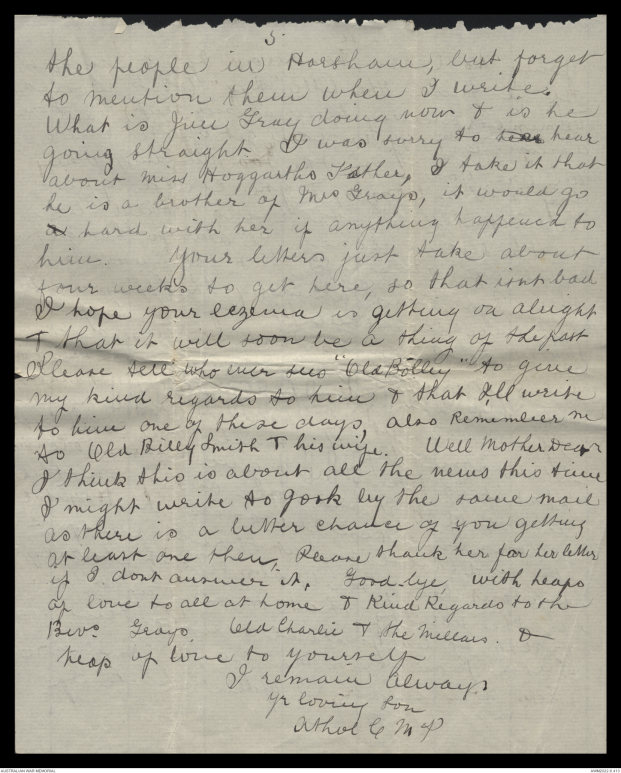 5.
the people in Horsham, but forget
to mention them when I write.
What is Jim Gray doing now & is he
going straight. I was sorry to hear hear
about Miss Hoggarths Father, I take it that
he is a brother of Mrs Grays, it would go
hard with her if anything happened to
him. Your letters just take about
four weeks to get here, so that isnt bad
I hope your eczema is getting on alright
& that it will soon be a thing of the past
Please tell who ever sees "Old Bolley" to give
my kind regards to him & that I'll write
to him one of these days, also Remember me
to Old Billy Smith & his wife. Well Mother Dear
I think this is about all the news this time
I might write to by the same mail
as there is a better chance of you getting
at least one then, Please thank her for her letter
if I dont answer it. Good-bye, with heaps
of love to all at home & Kind Regards to the
Bevs. Grays, Old Charlie & the Millars. &
heap of love to yourself
I remain always
Yr loving Son
Athol
AUSTRALIAN WAR MEMORIAL